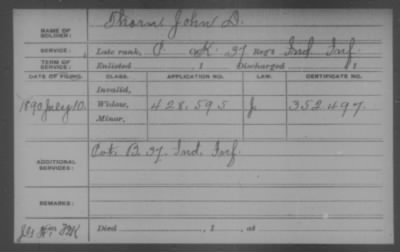 NAME OF SOLDIER: Thorne John D.
SERVICE: Late rank, P. Co K. 37 Reg't Ind Inf.
TERM OF SERVICE: Enlisted , 1 Discharged , 1
DATE OF FILING. CLASS. APPLICATION NO. LAW. CERTIFICATE NO.
Invalid,
1890 July 10. Widow, 428.595 J 352.497.
Minor,
ADDITIONAL SERVICES: Cot. B. 37. Ind. Inf.
REMARKS:
Died , 1 , at